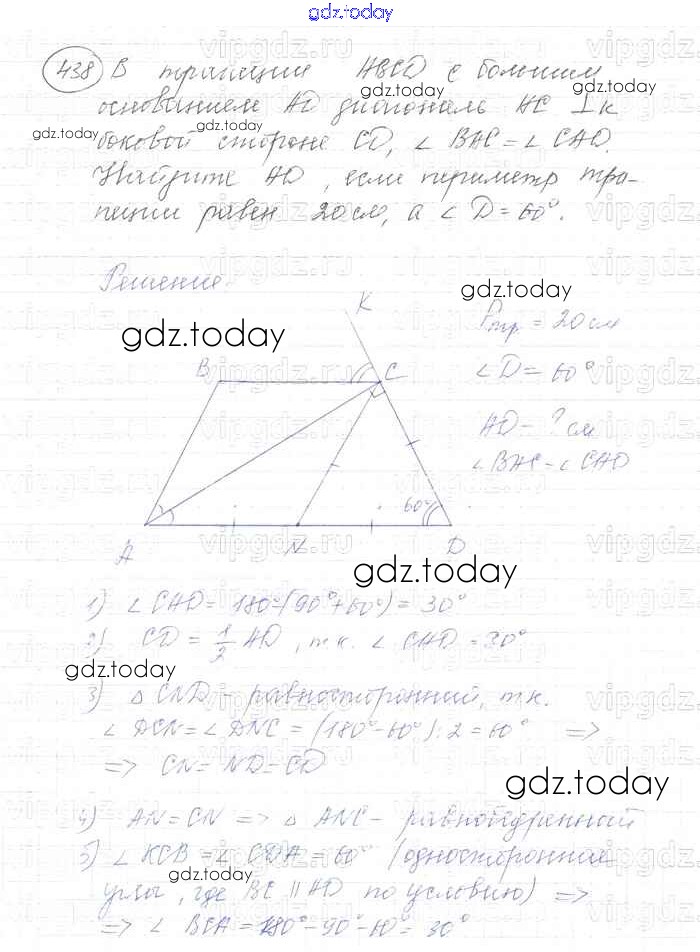 gdz.today
438 В трапеции ABCD с большим
основанием AD диагональ AC ⊥ к
боковой стороне CD, ∠ BAC = ∠ CAD.
Найдите AD, если периметр тра-
пеции равен 20 см, а ∠ D = 60°.
Решение.
K
B C
Pтр = 20 см
∠ D = 60°
AD - ? см
∠ BAC = ∠ CAD
60°
A N D
1) ∠ CAD = 180°-(90°+60°) = 30°
2) CD = 1/2 AD, т.к. ∠ CAD = 30°
3) △ CND - равносторонний, т.к.
∠ DCN = ∠ DNC = (180°-60°):2 = 60° =>
=> CN = ND = CD
4) AN = CN => △ ANC - равнобедренный
5) ∠ KCB = ∠ CDA = 60° (односторонние
углы, где BC || AD по условию) =>
=> ∠ BCA = 180°-90°-60° = 30°
gdz.today
gdz.today
gdz.today
gdz.today
gdz.today
gdz.today
gdz.today
gdz.today
gdz.today
gdz.today
gdz.today